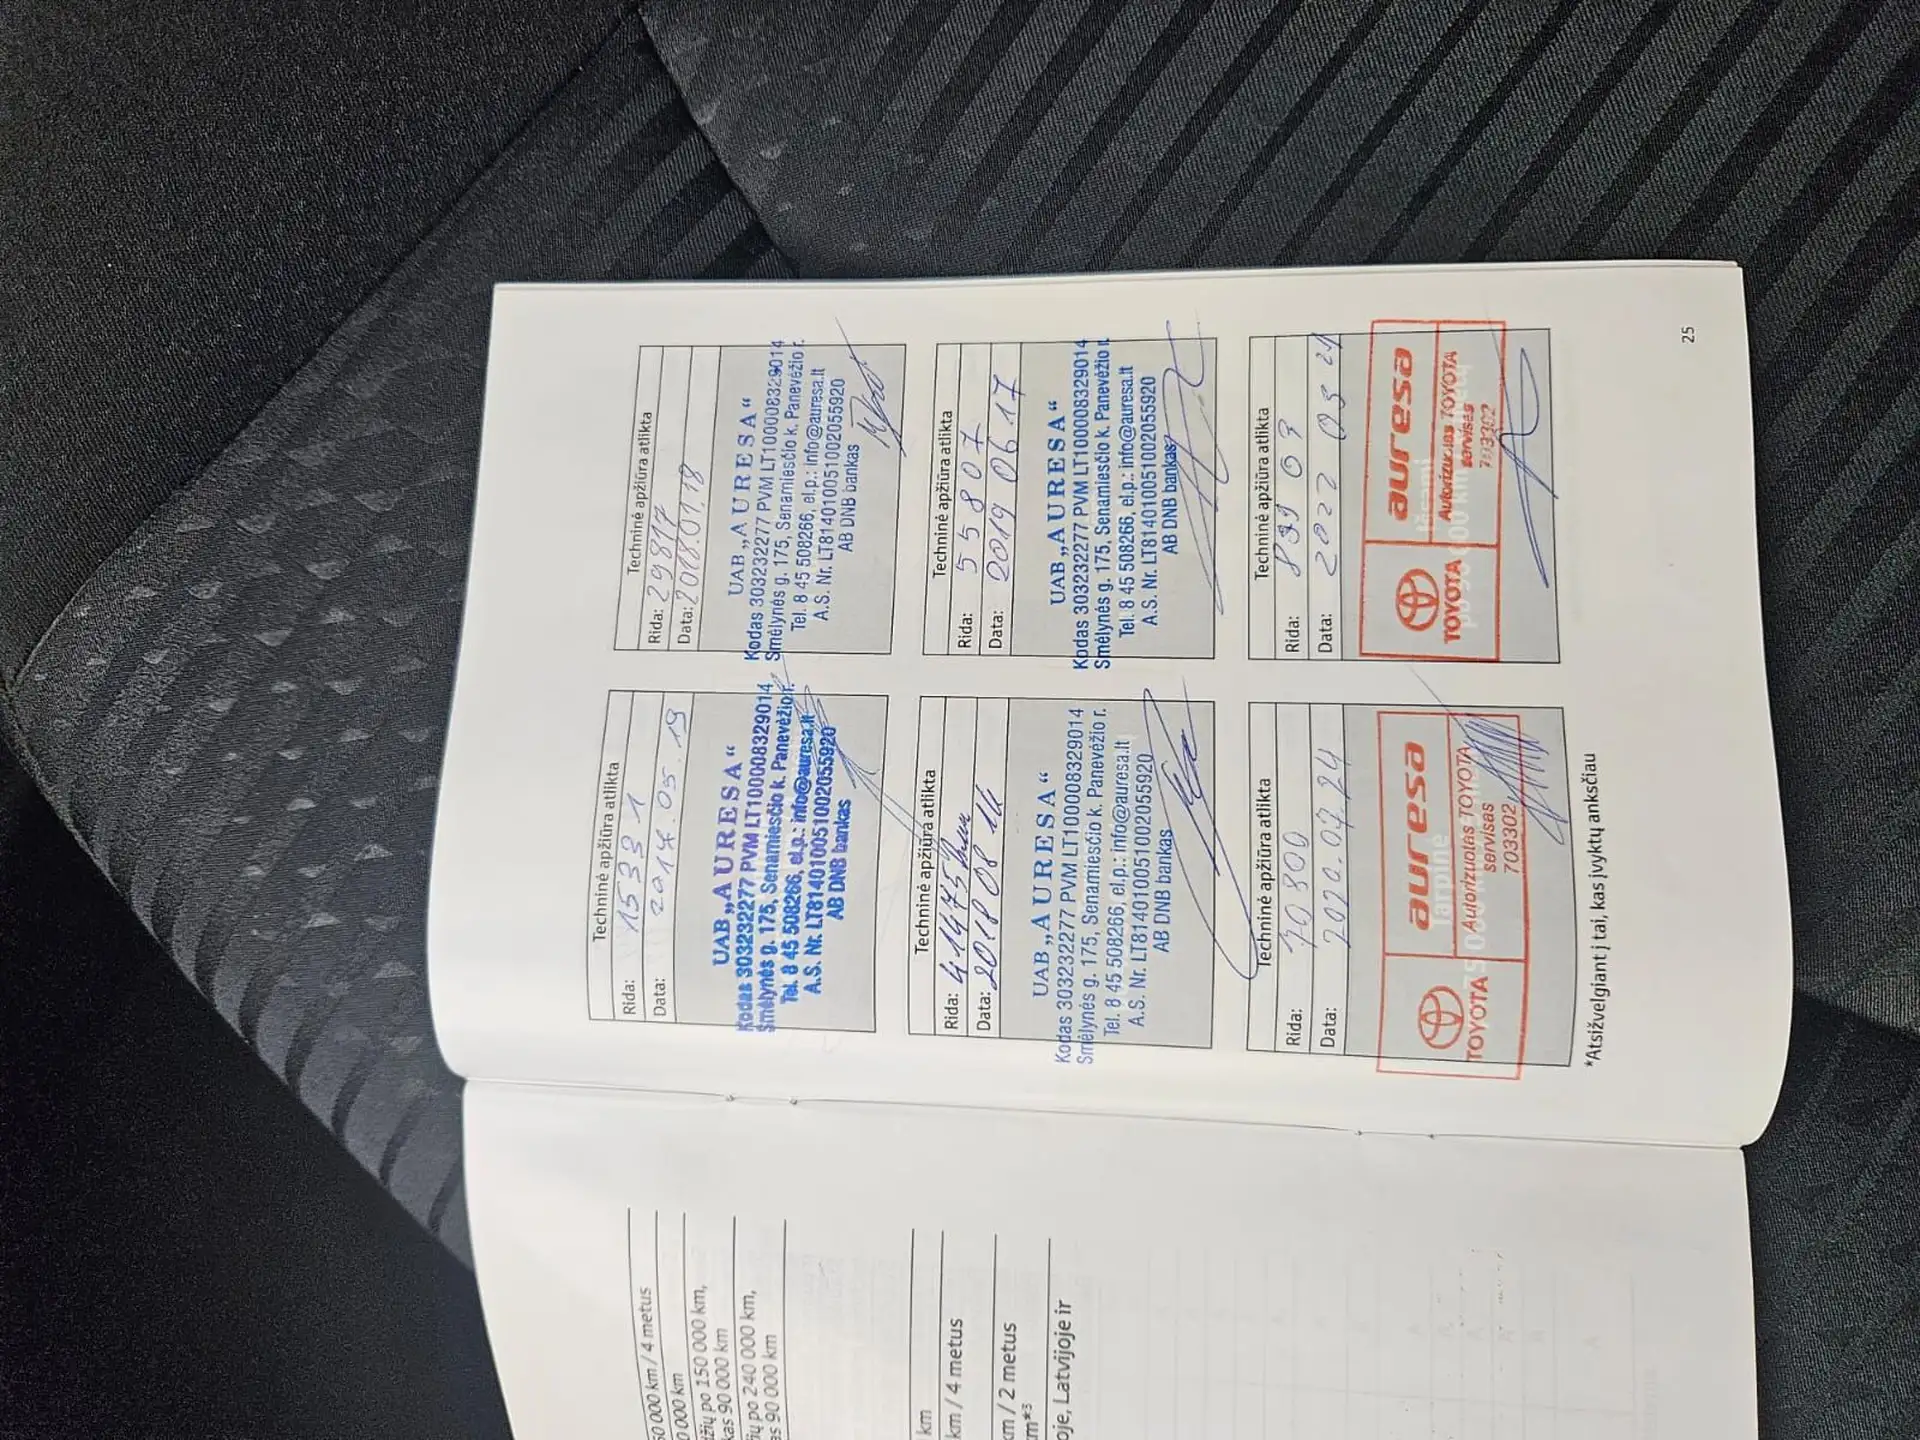 50 000 km / 4 metus
0 000 km
džių po 150 000 km,
kas 90 000 km
ių po 240 000 km,
as 90 000 km
km
km / 4 metus
km / 2 metus
km*3
oje, Latvijoje ir
Techninė apžiūra atlikta
Rida: 15331
Data: 2017.05.19
UAB „AURESA“
Kodas 303232277 PVM LT100008329014
Smėlynės g. 175, Senamiesčio k. Panevėžio r.
Tel. 8 45 508266, el.p.: info@auresa.lt
A.S. Nr. LT814010051002055920
AB DNB bankas
Techninė apžiūra atlikta
Rida: 29817
Data: 2018.01.18
UAB „AURESA“
Kodas 303232277 PVM LT100008329014
Smėlynės g. 175, Senamiesčio k. Panevėžio r.
Tel. 8 45 508266, el.p.: info@auresa.lt
A.S. Nr. LT814010051002055920
AB DNB bankas
Techninė apžiūra atlikta
Rida: 41475
Data: 2018 08
UAB „AURESA“
Kodas 303232277 PVM LT100008329014
Smėlynės g. 175, Senamiesčio k. Panevėžio r.
Tel. 8 45 508266, el.p.: info@auresa.lt
A.S. Nr. LT814010051002055920
AB DNB bankas
Techninė apžiūra atlikta
Rida: 55807
Data: 2019 06 17
UAB „AURESA“
Kodas 303232277 PVM LT100008329014
Smėlynės g. 175, Senamiesčio k. Panevėžio r.
Tel. 8 45 508266, el.p.: info@auresa.lt
A.S. Nr. LT814010051002055920
AB DNB bankas
Techninė apžiūra atlikta
Rida: 70800
Data: 2020.07.24
Tarpinė
TOYOTA
auresa
Autorizuotas TOYOTA
servisas
703302
Techninė apžiūra atlikta
Rida: 89903
Data: 2022 03 21
Išsami
TOYOTA
auresa
Autorizuotas TOYOTA
servisas
703302
*Atsižvelgiant į tai, kas įvyktų anksčiau
25